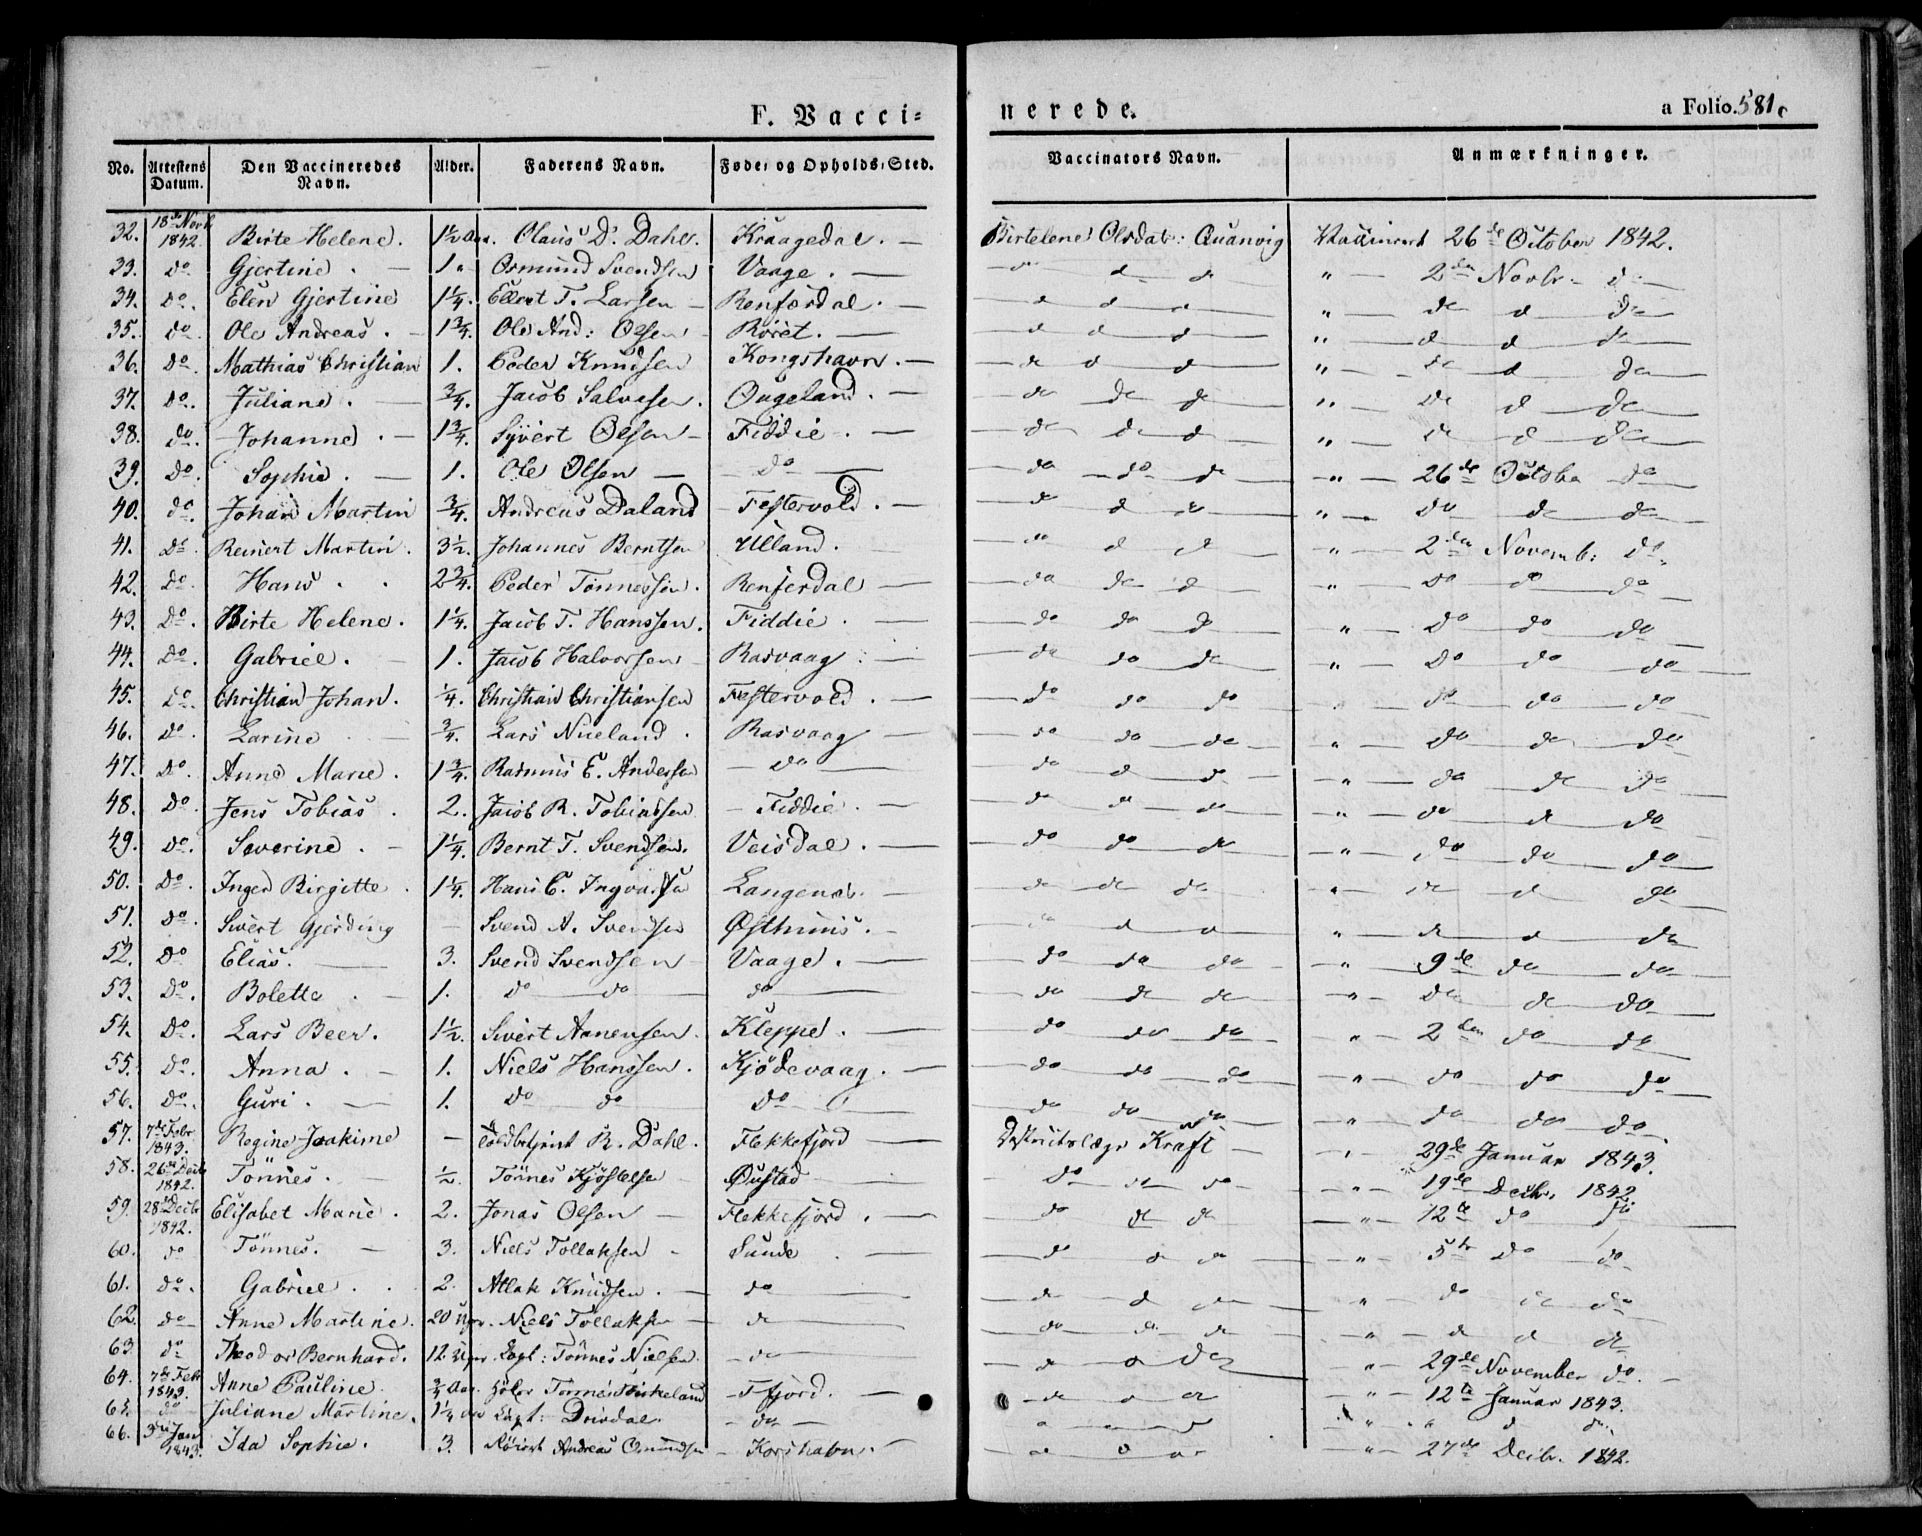 F. Vacci= nerede. a Folio. 581.
No. Attestens Datum. Den Vaccineredes Navn. Alder. Faderens Navn. Føde- og Opholds-Sted. Vaccinators Navn. Anmærkninger.
32. 18de Novbr 1842. Birte Helene. 1½ Aar. Olaus D. Dahl. Kraagedal. — Birtelene Olsdat: Quanvig Vaccineret 26de October 1842.
33. do Gjertine. — 1 " Osmund Svendsen Vaage. — d d d " — 2den Novbr. d
34. do. Elen Gjertine 1¼. Ellert T. Larsen — Renfordal. — d d d " — do d do
35. do. Ole Andreas. — 1¾. Ole And: Olsen Röiet. — d d d " — d d do
36. do. Mathias Christian 1. Peder Knudsen Kongshavn. — do d d " — do d do
37. do. Juliane. — ¾. Jacob Salvesen. Ougeland. — do do do " — do d do
38. do. Johanne. — 1¾. Syvert Olsen — Fiddie. — do do d " — do d do
39. do. Sophie. — 1. Ole Olsen — do — do do do " — 26de Octobr do
40. do. Johan Martin ¾. Andreas Daland Festervold. — do d do " — do do do
41. do. Reinert Martin. 3½. Johannes Berntsen Ulland. do d d " — 2den Novemb: do.
42. do. Hans. . 2¾. Peder Tönnessen. Renferdal — do do d " — do do do
43. do. Birte Helene. 1¼. Jacob T. Hanssen. Fiddie. — do do do " — do do do
44. do. Gabriel. — 1. Jacob Halvorsen Rasvaag. — do do do " — do do do
45. do. Christian Johan. ¼. Christian Christiansen Festervold. — do do do " — do do do
46. do. Larine — ¾. Lars Nueland. Rasvaag — do do do " — do do do
47. do. Anne Marie. 1¾. Rasmus E. Andersen — do — do d do " — do do do
48. do. Jens Tobias. 2. Jacob R. Tobiassen — Fiddie. — do do do " — do d do
49. do. Severine. — 1¼. Bernt T. Svendsen. Veisdal. — do do do " — do do do
50. do. Inger Birgitte. 1¼. Hans C. Langenes. — do do do " — do d do
51. do. Sivert Gjerding — Svend A. Svendsen — do d d " — do d do
52. do Elias. — 3. Svend Svendsen Vaage. — do do do " — 9de do do
53. do. Bolette. — 1. do do do — do do do " — do do do
54. do. Lars Beer. 1½. Sivert Aanensen. Kleppe. — do do do " — 2den do do
55. do. Anna. — 1. Niels Hanssen. Kjödevaag. — do do do " — do do do
56. do. Guri. — 1. do do do — do do do " — do do do.
57. 7de Febr 1843. Regine Joakime — Toldbetjent R. Dahl. Flekkefjord — Districtslæge Kraft — " 29de Januar 1843.
58. 26de Decbr 1842. Tönnes. — ½. Tönnes Öustad — do do do " — 19de Decbr. 1842.
59. 28de Decbr 1842. Elisabet Marie. 2. Jonas Olsen — Flekkefjord. — do do do " — 12te do do
60. do Tönnes. — 3. Niels Tollaksen — Sunde. — do d do " — 5te do do
61. do. Gabriel. . 2. Atlak Knudsen. — do — do d do " — do do do
62. do Anne Martine. 20 Uger. Niels Tollaksen — do — do do do " — d d do
63. do Theodor Bernhard. 12 Uger Capt: Tönnes Nielsen. — do — d d do " — 29de November do. —
64. 7de Febr 1843. Anne Pauline. ¾ Aar. Tönnes Birkeland — Ffjord. — do d do " — 12te Januar 1843.
65. do Juliane Martine. 1¼ Aar Capt: Drivdal. — do — " " d do.
66. 3die Jan 1843. Ida Sophie. 3. Andreas Omundsen — Korshavn. — d d do " — 27de Decbr. 1842.